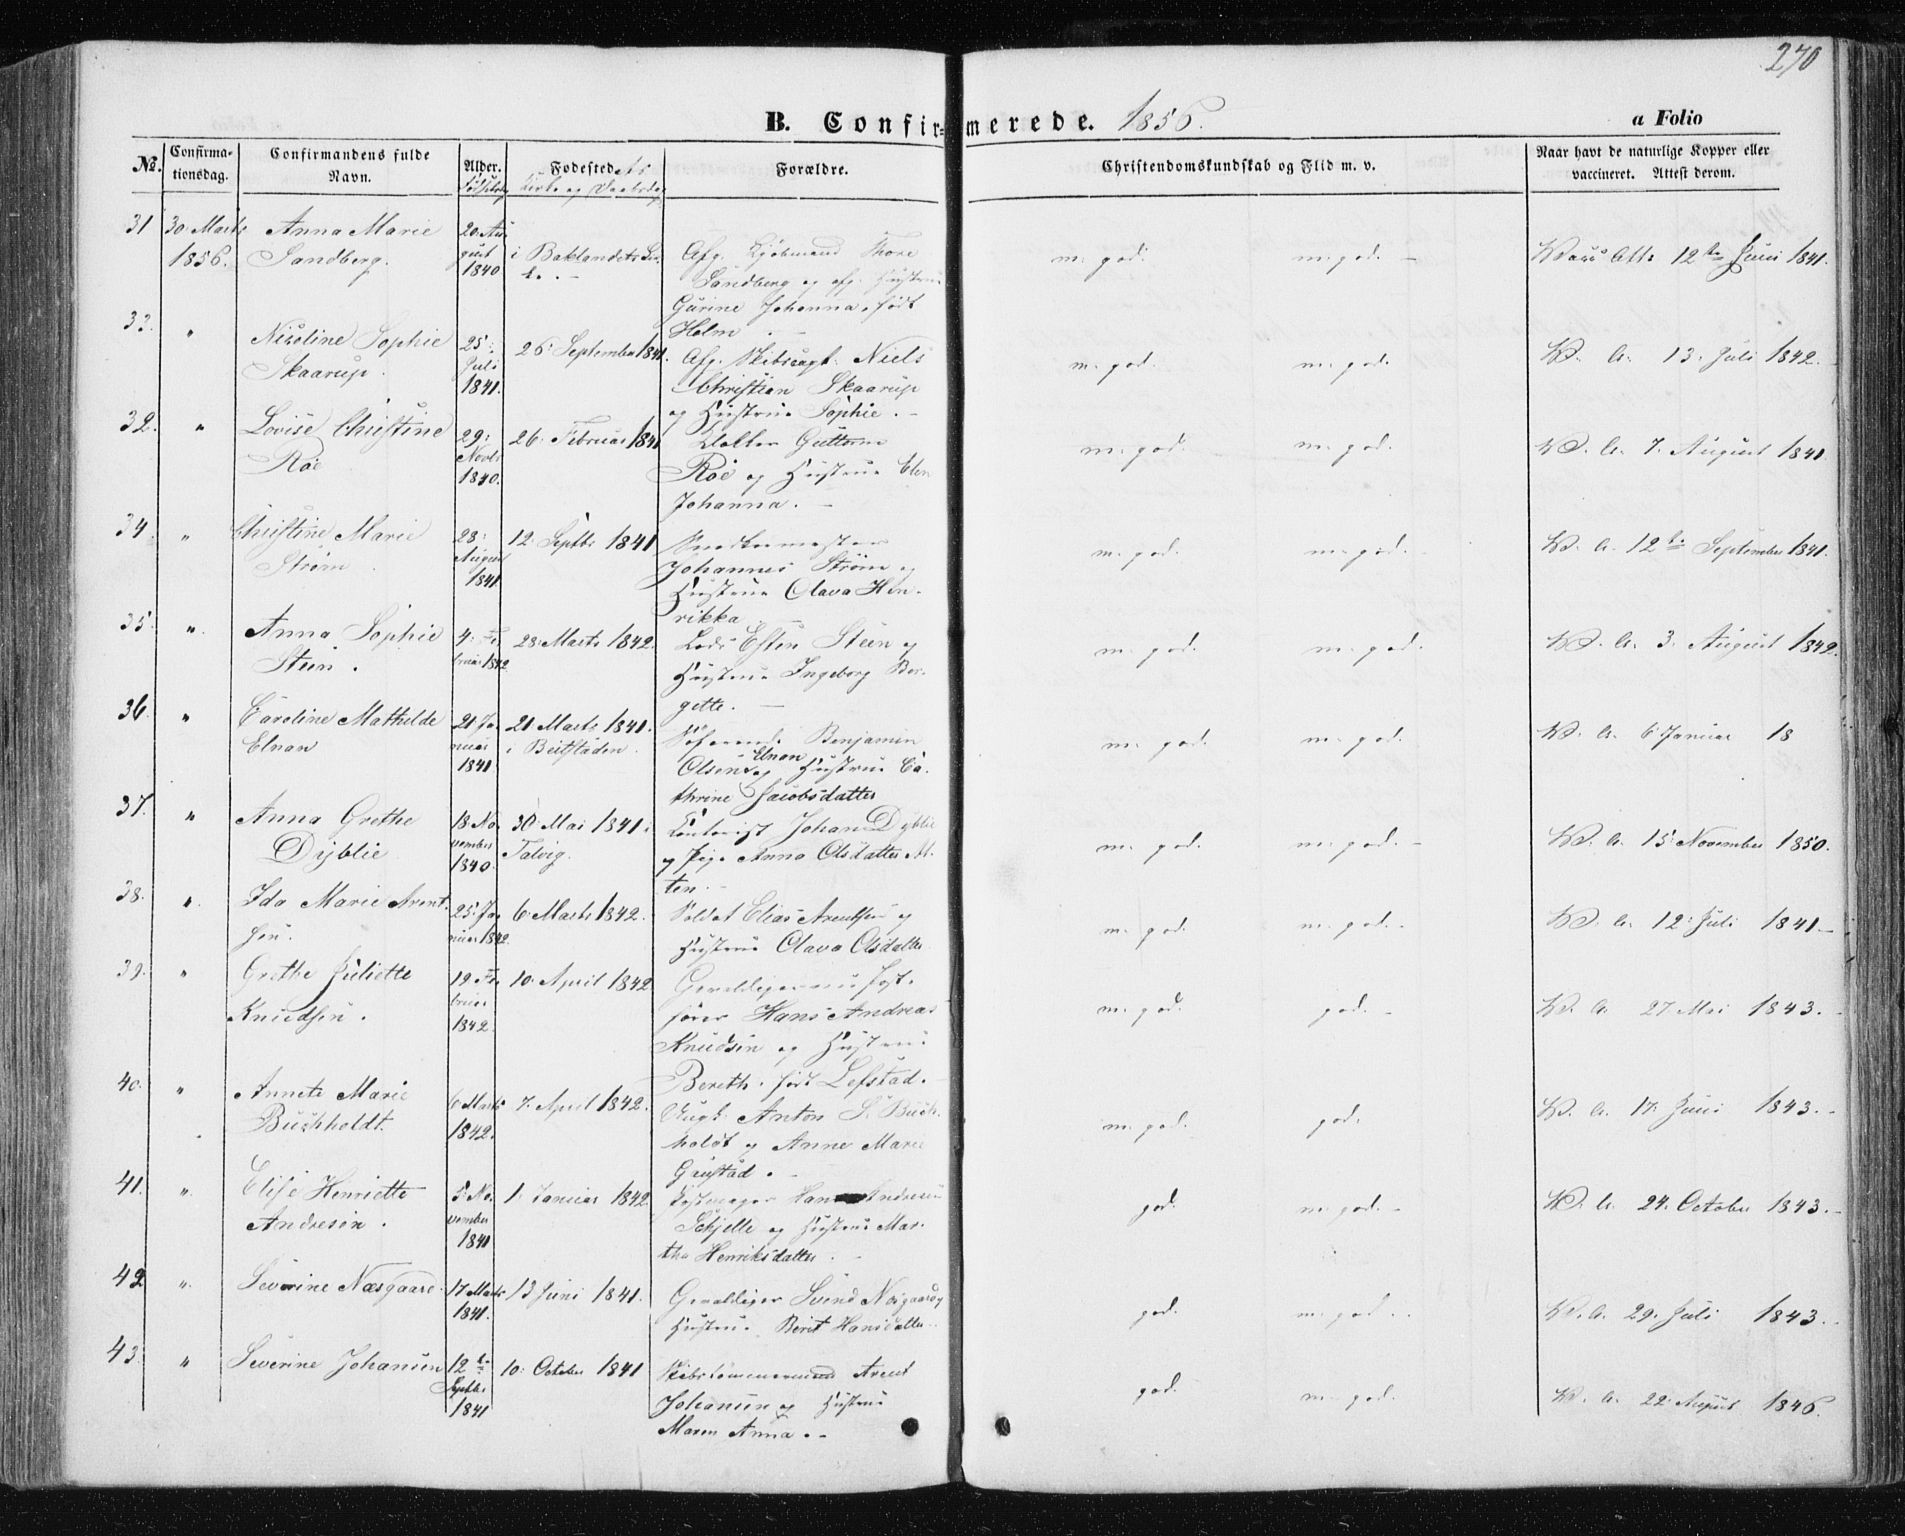 270
B. Confirmerede. 1856.
a Folio
No. Confirmationsdag. Confirmandens fulde Navn. Alder. Fødested Forældre. Christendomskundskab og Flid m. v. Naar havt de naturlige Kopper eller vaccineret. Attest derom.
31 30 Marts 1856. Anna Marie Sandberg. 20 August 1840 i Baklandets
Afg. Kjøbmand Thore
Sandberg og afg. Hustrue
Gurine Johanna, født
Holm
m. god. m. god. - Att. 12te Juni 1841.
33. " Nicoline Sophie Skaarup. 25. Juli 1841. 26 September 1841.
Afg. Niels
Christian Skaarup
og Hustrue Sophie. -
m. god. m. god. V. A. 13. Juli 1842.
32. " Lovise Christine Roe 29. Novbr 1840. 26. Februar 1841
Guttorm
Roe og Hustrue Elen
Johanna. -
m. god. m. god. V. A. 7. August 1841.
34 " Christine Marie Strøm 28. August 1841 12 Septbr 1841
Snedkermester
Johannes Strøm og
Hustrue Olava Hen-
rikka
m. god. m. god. V. A. 12te September 1841.
35. " Anna Sophie Steen. 4. Februar 1842 28 Marts 1842.
Lods Esten Steen og
Hustrue Ingeborg Ber-
gette. -
m. god. m. god. V. A. 3. August 1842.
36. " Caroline Mathilde Elnan 21 Januar 1841 21 Marts 1841. i Beitstaden.
Søfarende Benjamin
Olsen Elnan og Hustrue Ca-
thrine Jacobsdatter
m. god. m. god. V. A. 6 Januar 18
37. " Anna Grethe Dyblie 18 November 1840. 30 Mai 1841. Talvig.
Contorist Johan Dyblie
og Pige Anna Olsdatter Al-
ten. -
m. god. m. god. - V. A. 15 November 1850.
38. " Ida Marie Arentsen. 25. Januar 1842 6 Marts 1842.
Soldat Elias Arentsen og
Hustrue Olava Olsdatter
m. god. m. god. - V. A. 12. Juli 1841 -
39. " Grethe Juliette Knudsen. 19. Februar 1842. 10. April 1842
Hans Andreas
Knudsen og Hustrue
Bereth, født Lefstad. -
m. god. god. - V. A. 27 Mai 1843. -
40. " Annete Marie Buchholdt. 6 Marts 1842. 7. April 1842.
Ungk. Anton S. Buch-
holdt og Anne Marie
Gaustad. -
m. god. god. V. A. 17. Juni 1843. -
41. " Elise Henriette Andresen. 5 November 1841 1. Januar 1842.
Hans Andresen
Schjelle og Hustrue Mar-
tha Henriksdatter. -
god. m. god. - V. A. 24. October 1843. -
42 " Severine Næsgaard. 17 Marts 1841. 13 Juni 1841.
Gevaldiger Svend Nesgaard og
Hustrue Berit Hansdatter.
god. m. god. - V. A. 29. Juli 1843. -
43. " Severine Johansen 12te Septbr 1841 10. October 1841
Skibstømmermand Arent
Johansen og Hustrue
Maren Anna. -
god. m. god. V. A. 22 August 1846.